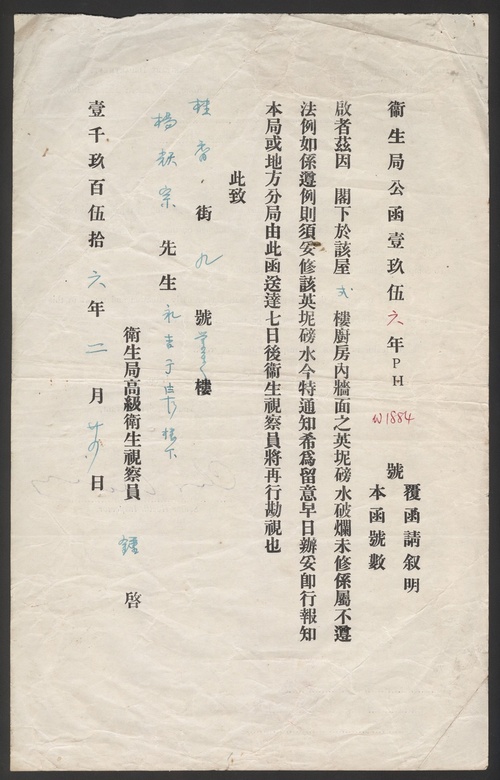 衞生局公函壹玖伍六年PH W1884 號
覆函請叙明
本函號數
啟者茲因 閣下於該屋 樓廚房內牆面之英坭磅水破爛未修係屬不遵
法例如係遵例則須妥修該英坭磅水今特通知希爲留意早日辦妥卽行報知
本局或地方分局由此函送達七日後衞生視察員將再行勘視也
此致
桂香街九號 樓
楊 宗先生
衞生局高級衞生視察員 啓
壹千玖百伍拾六年二月 日